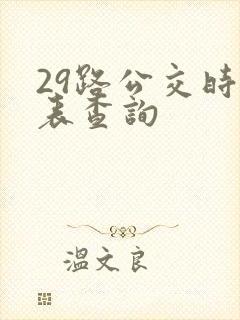 29路公交时
表查詢
溫文良